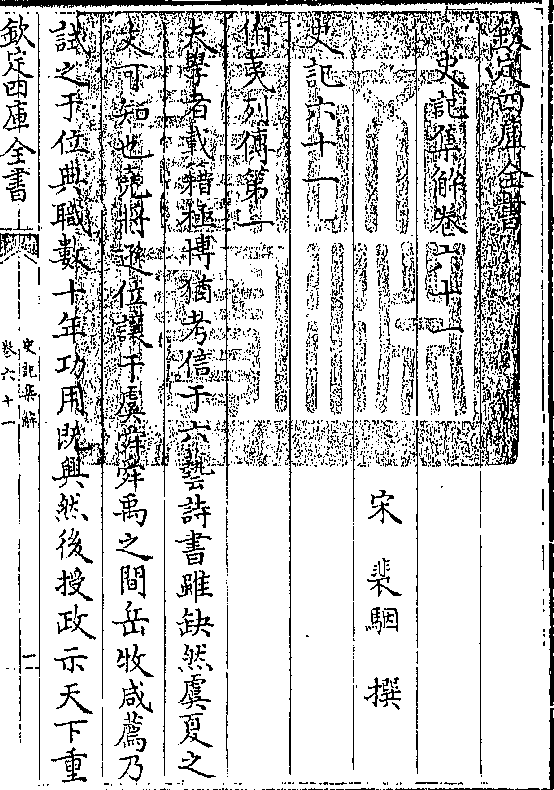 欽定四庫全書
史記集解卷六十一
宋 裴駰 撰
史記六十一
伯夷列傳第一
夫學者載籍極博猶考信于六藝詩書雖缺然虞夏之
文可知也堯將遜位讓于虞舜舜禹之間岳牧咸薦乃
試之于位典職數十年功用既興然後授政示天下重
欽定四庫全書
史記集解
卷六十一
一